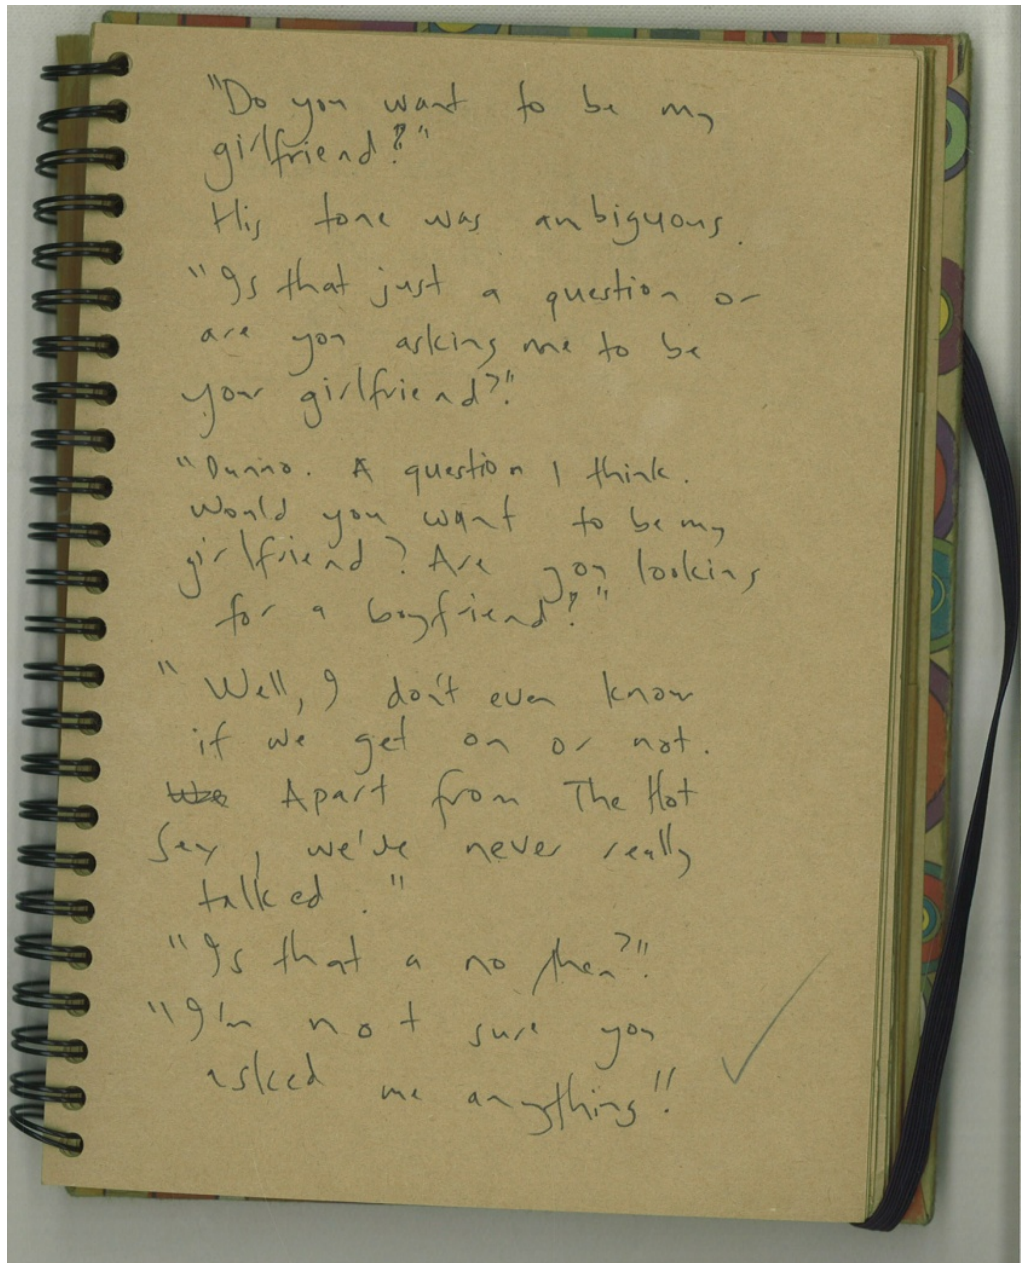 "Do you want to be my
girlfriend?"
His tone was ambiguous.
"Is that just a question or
are you asking me to be
your girlfriend?".
"Dunno. A question I think.
Would you want to be my
girlfriend? Are you looking
for a boyfriend?"
"Well, I don't even know
if we get on or not.
Apart from The Hot
Sex, we've never really
talked."
"Is that a no then?".
"I'm not sure you
asked me anything".